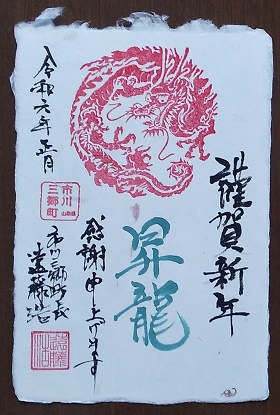 謹賀新年
昇龍
感謝申し上げます
令和六年正月
市川
山梨県
三郷町
市川三郷町長
遠藤浩
遠藤
浩